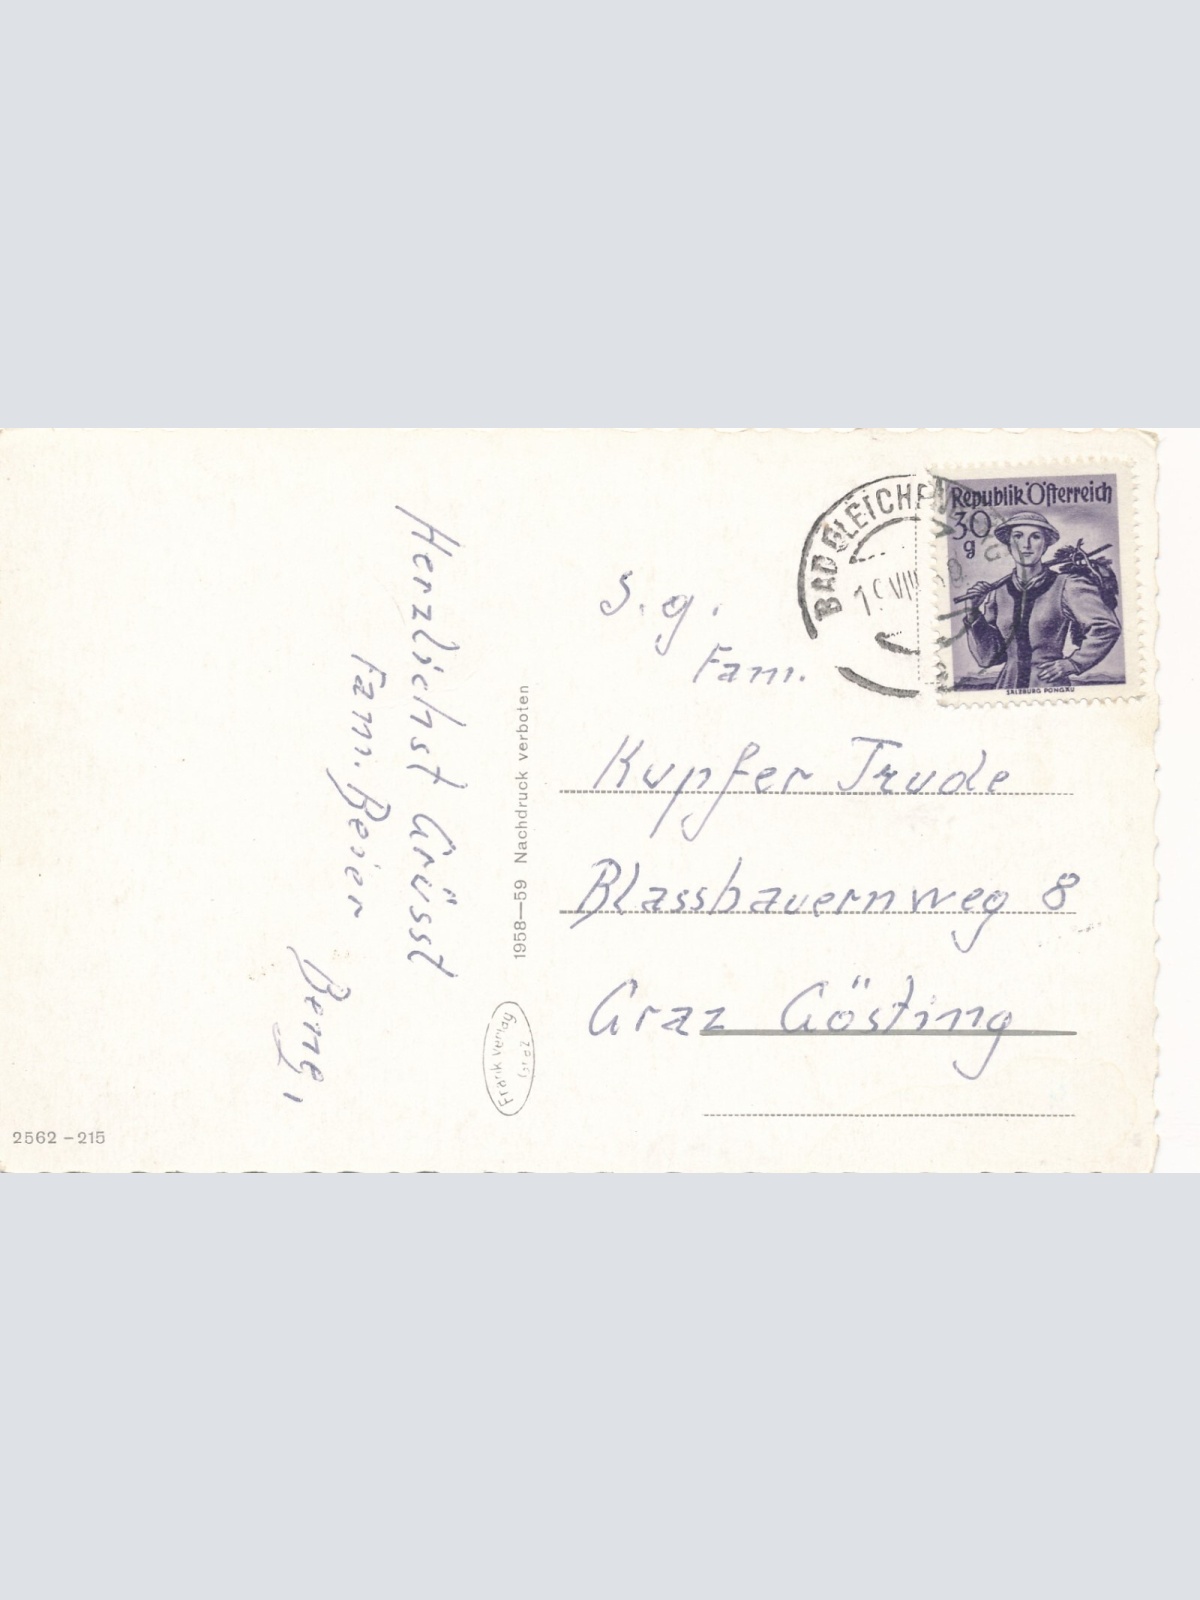 Herzlichst Grüsst
Fam. Beier
1958—59 Nachdruck verboten
Frank Verlag
Graz
2562 – 215
BAD GLEICHEN
19.VIII.
Republik Österreich
30
g
SALZBURG PONGAU
S. g.
Fam.
Kupfer Trude
Blassbauernweg 8
Graz Gösting